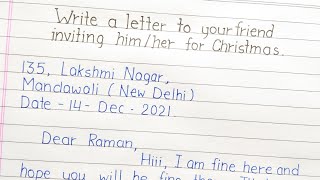 Write a letter to your friend
inviting him/her for Christmas.
135, Lakshmi Nagar,
Mandawali (New Delhi)
Date - 14 - Dec - 2021.
Dear Raman,
Hiii, I am fine here and
hope you will be fine